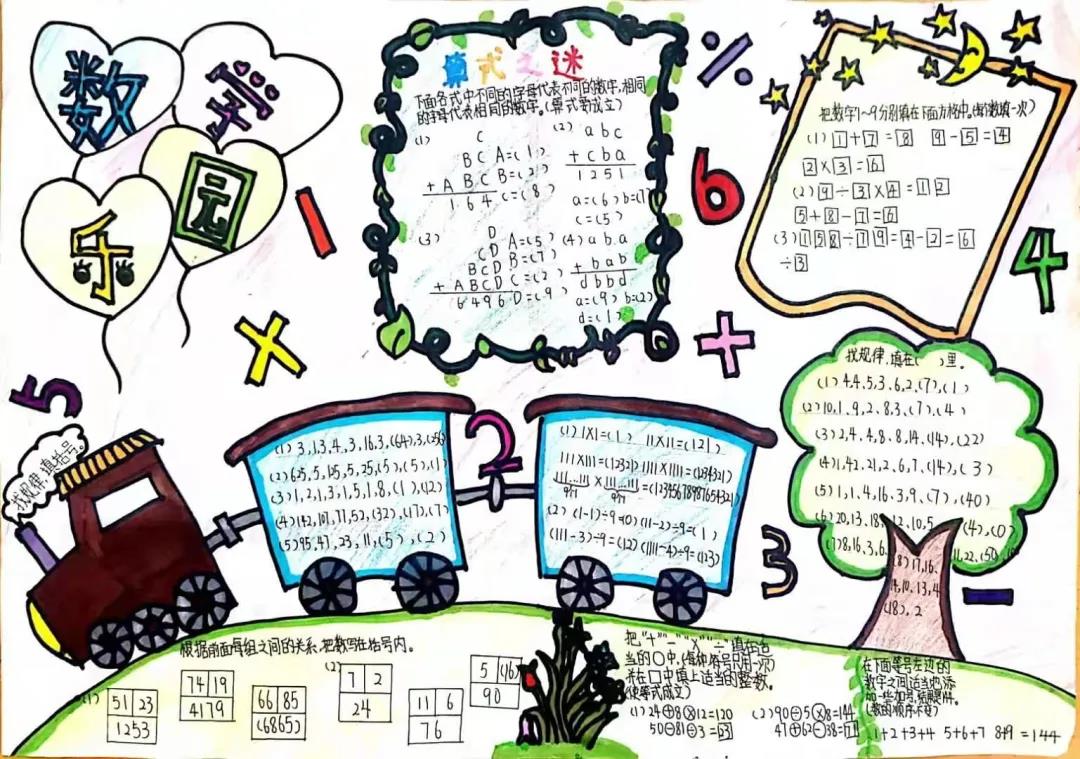 数学
乐园
1
5
×
算式之迷
下面各式中不同的字母代表不同的数字,相同
的字母代表相同的数字。(算式要成立)
(1)
C
B C A=(1)
+ A B C B=(2)
1 6 4 C=(8)
(2) a b c
+ c b a
1 2 5 1
a=(6) b=(7)
c=(5)
(3) D
C D A=(5)
B C D B=(7)
+ A B C D C=(2)
6 4 9 6 D=(9)
(4) a b a
+ b a b
d b b d
a=(9) b=(2)
d=(1)
%
6
+
4
把数字1~9分别填在下面方格中。(每个数填一次)
(1) 1+7=8 9-5=4
2×3=6
(2) 9÷3×4=12
5+8-7=6
(3) 158÷79=4-2=6
÷3
找规律,填括号。
(1) 3,13,4,3,16,3,(64),3,(256)
(2) 625,5,125,5,25,(5),(5),(1)
(3) 1,2,1,3,1,5,1,8,(1),(12)
(4) 142,107,71,52,(32),(17),(7)
(5) 95,47,23,11,(5),(2)
2
(1) 1×1=(1) 11×11=(121)
111×111=(12321) 1111×1111=(1234321)
111…111×111…111=(12345678987654321)
9个1 9个1
(2) (1-1)÷9=(0) (11-2)÷9=(1)
(111-3)÷9=(12) (1111-4)÷9=(123)
3
-
找规律,填在( )里。
(1) 4,4,5,3,6,2,(7),(1)
(2) 10,1,9,2,8,3,(7),(4)
(3) 2,4,4,8,8,14,(14),(22)
(4) 1,42,21,2,6,7,(14),(3)
(5) 1,1,4,16,3,9,(7),(40)
(6) 20,13,18,12,10,5,(4),(0)
(7) 8,16,3,6,11,22,(50),
(8) 17,16,
14,10,13,4
(18),2
根据前面每组之间的关系,把数写在括号内。
(1)
51 23
1253
74 19
4179
66 85
(6865)
(2)
7 2
24
11 6
76
5 (46)
90
把"+""-""×""÷"填在合
当的○中,(每种符号只用一次)
并在□中填上适当的整数。
(使等式成立)
(1) 24+8×12=120
50-81÷3=23
(2) 90÷5×8=144
47+62-38=71
在下面等号左边的
数字之间适当地添
加一些加号,
(数的顺序不变)
1+2+3+4 5+6+7 8+9=144